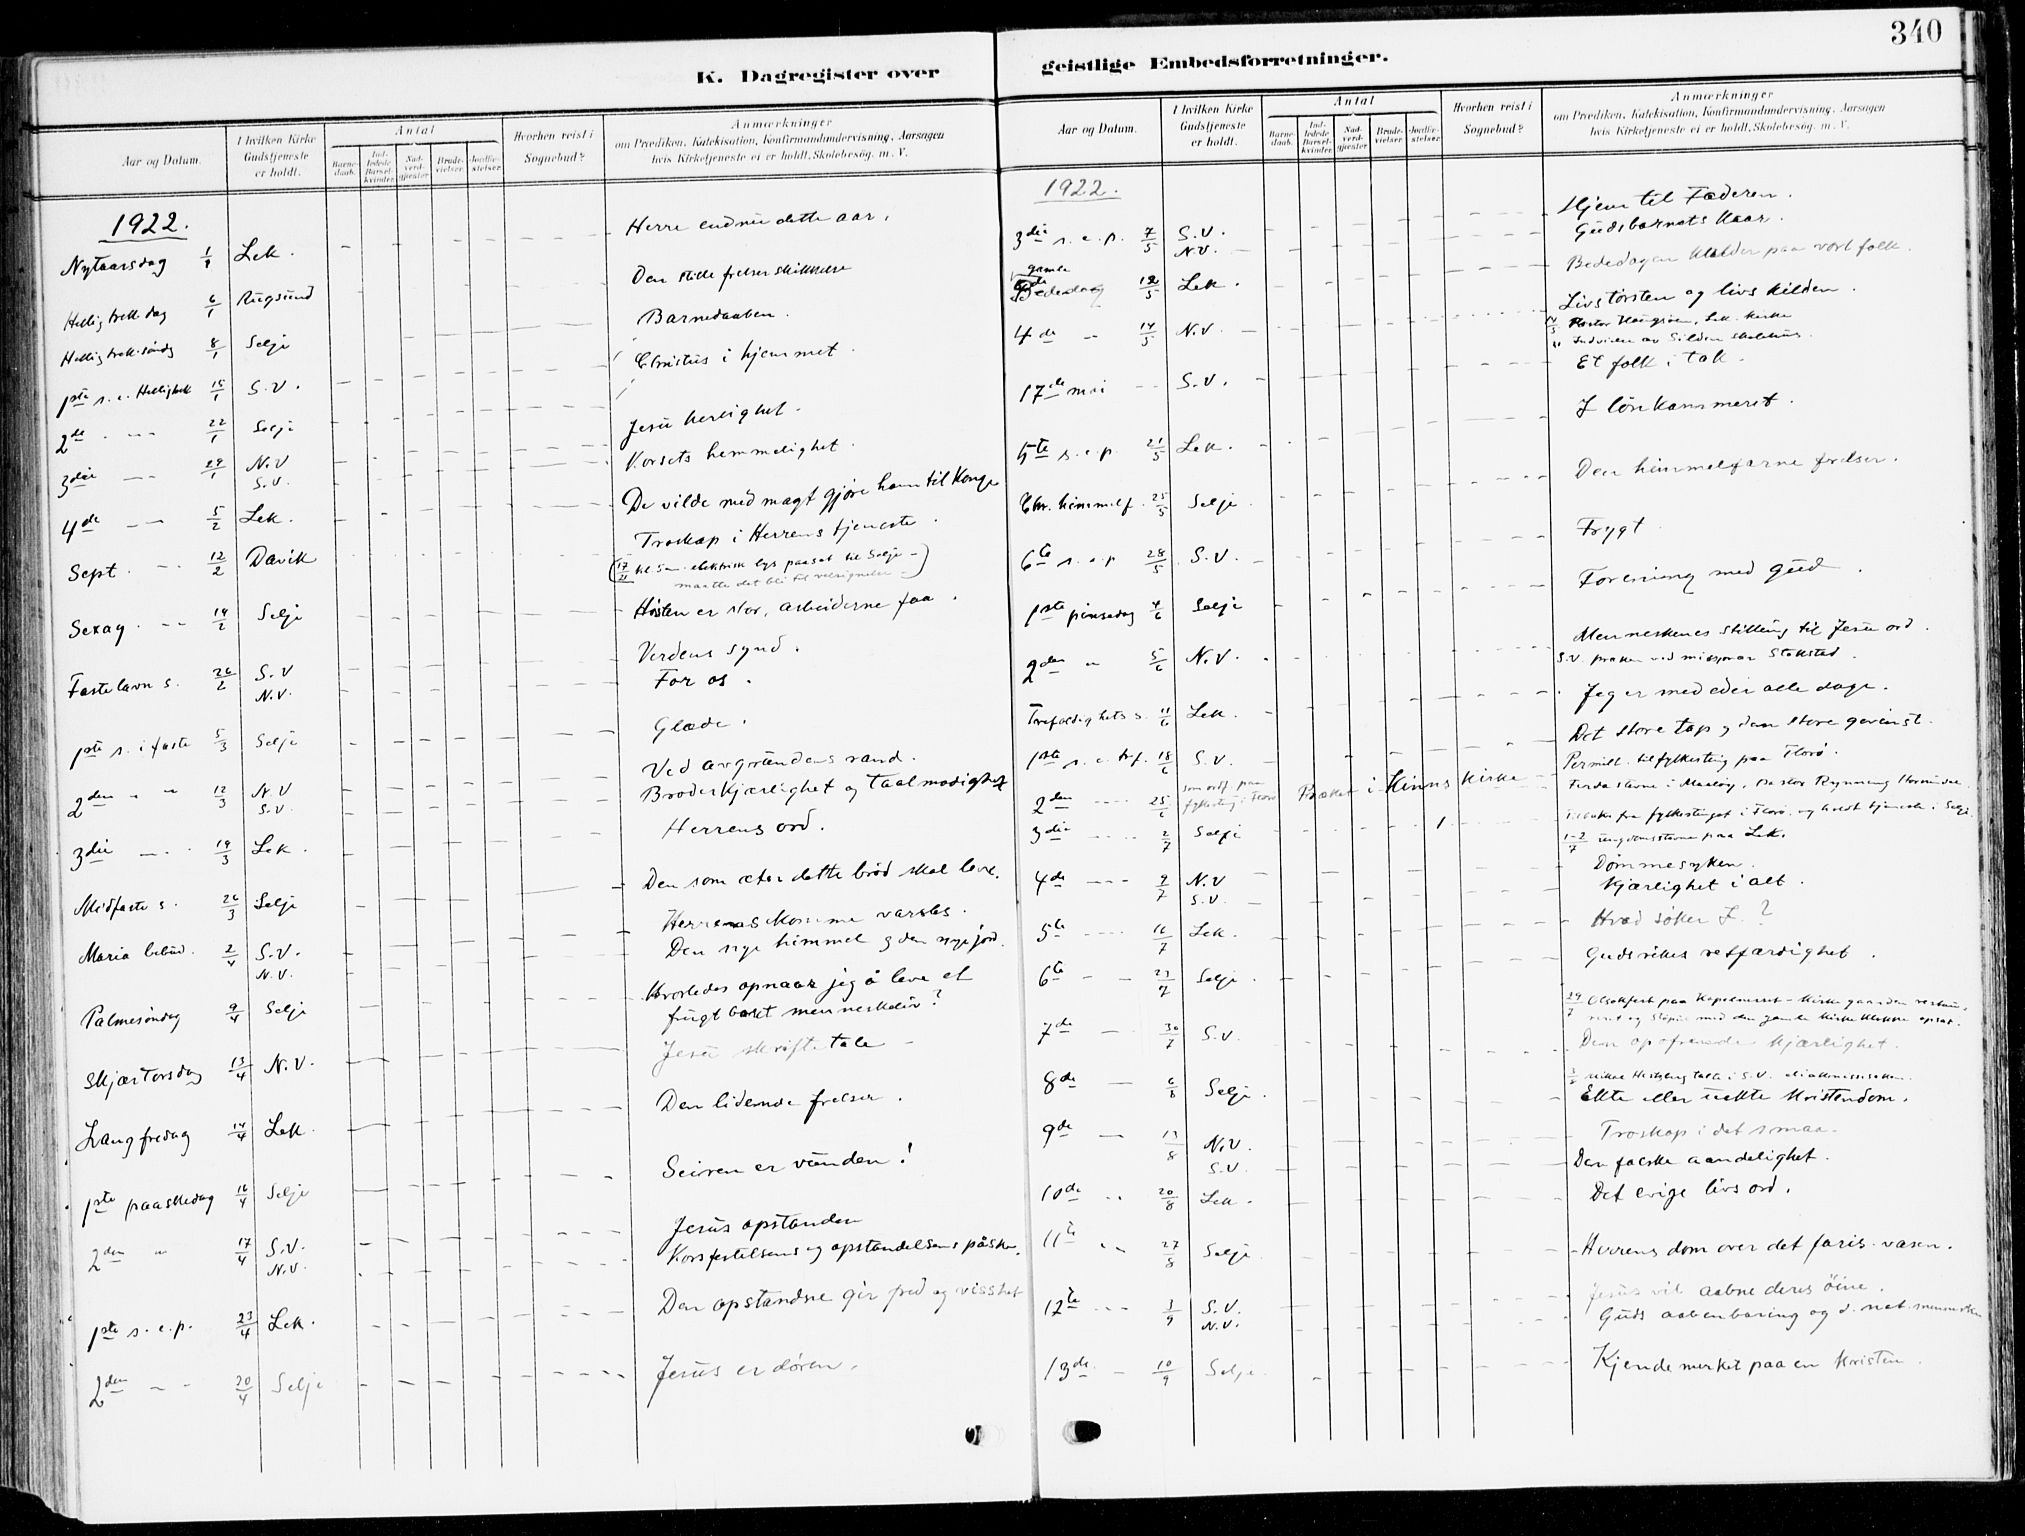 340
K. Dagregister over
geistlige Embedsforretninger.
Aar og Datum.
I hvilken Kirke
Gudstjeneste
er holdt.
Antal
Barne-
daab.
Ind-
ledede
Barsel-
kvinder
Nad-
verd-
gjæster
Brude-
vielser
Jordfæ-
stelser
Hvorhen reist i
Sognebud?
Anmærkninger
om Prædiken, Katekisation, Konfirmandundervisning, Aarsagen
hvis Kirketjeneste ei er holdt, Skolebesøg. m. V.
1922.
Nytaarsdag 1/1 Lek. Herre endnu dette aar.
Hellig trek. dag 6/1 Rugsund Den stille frelser skikkelse
Hellig trek. søndg 8/1 Selje Barnedaaben.
1ste s. e. Helligtrek 15/1 S.V. Christus i hjemmet.
2de 22/1 Selje Jesu herlighet.
3die 29/1 N.V Korsets hemmelighet.
S.V. De vilde med magt gjøre ham til Konge
4de 5/2 Lek. Troskap i Herrens tjeneste.
Sept. 12/2 Davik (17/21 kl. 5 elektrisk lys paasat til Selje
maatte det bli til velsignelse)
Sexag. 19/2 Selje Høsten er stor, arbeiderne faa.
Fastelavn s. 26/2 S.V Verdens synd.
N.V. For os.
1ste s. i faste 5/3 Selje Glæde.
2den 12/3 N.V Ved avgrundens rand.
S.V. Broderkjærlighet og taalmodighet
3die 19/3 Lek. Herrens ord.
Midfaste s. 26/3 Selje Den som æter dette brød skal leve.
Maria bebud. 2/4 S.V. Herrens komme varsles.
N.V. Den nye himmel og den nye jord.
Palmesøndag 9/4 Selje Hvorledes opnaar jeg å leve et
frugtbart menneskeliv?
Skjærtorsdag 13/4 N.V. Jesu skriftetale
Langfredag 14/4 Lek. Den lidende frelser.
1ste paaskedag 16/4 Selje Seiren er vunden!
2den 17/4 S.V. Jesus opstanden
N.V. Korsfestelsens og opstandelsens påske.
1ste s. e. p. 23/4 Lek. Den opstandne gir fred og visshet
2den 20/4 Selje Jesus er døren.
Aar og Datum.
I hvilken Kirke
Gudstjeneste
er holdt.
Antal
Barne-
daab.
Ind-
ledede
Barsel-
kvinder
Nad-
verd-
gjæster
Brude-
vielser
Jordfæ-
stelser
Hvorhen reist i
Sognebud?
Anmærkninger
om Prædiken, Katekisation, Konfirmandundervisning, Aarsagen
hvis Kirketjeneste ei er holdt, Skolebesøg. m. V.
1922.
3die s. e. p. 7/5 S.V. Hjem til Faderen.
N.V. Gudsbarnets kaar.
gamle
Bededag 12/5 Lek. Bededagen kalder paa vort folk.
4de 14/5 N.V. Livstørsten og livskilden.
14/5 Pastor Haugsøen, Lek. kirke
Indvielse av Silden skolehus.
17de mai S.V. Et folk i tak.
5te s. e. p. 21/5 Lek. I lønkammeret.
Chr. himmelf. 25/5 Selje Den himmelfarne frelser.
6te s. e. p 28/5 S.V. Frygt
1ste pinsedag 4/6 Selje Forening med Gud.
2den 5/6 N.V. Menneskenes stilling til Jesu ord.
S.V. præken ved misjonær Stokstad.
Trefoldighets s. 11/6 Lek. Jeg er med eder alle dage.
1ste s. e. tref. 18/6 S.V. Det store tap og den store gevinst.
Permitt. til fylkesting paa Florø.
2den 25/6 som ordf. paa
fylkesting i Florø Præket i Kinns Kirke Ferdastevne i Maaløy, Pastor Rynning
3die 2/7 Selje 1 fra fylkestinget i Florø og holdt tjeneste i Selje
1-2/7 ungdomsstevne paa Lek.
4de 9/7 N.V Dømmesyken.
S.V. Kjærlighet i alt.
5te 16/7 Lek. Hvad søker I?
6te 23/7 Selje Gudsrikes retfærdighet.
29/7 Olsokfest paa
med den gamle kirkeklokke opsat.
7de 30/7 S.V. Den opofrende kjærlighet.
8de 6/8 Selje. Ekte eller uekte kristendom.
9de 13/8 N.V Troskap i det smaa.
S.V. Den falske aandelighet.
10de 20/8 Lek. Det evige livs ord.
11te 27/8 Selje Herrens dom over det faris. væsen.
12te 3/9 S.V. Jesus vil aabne deres øine.
N.V. Guds aabenbaring og d. nat. menneske
13de 10/9 Selje. Kjendemerket paa en kristen.